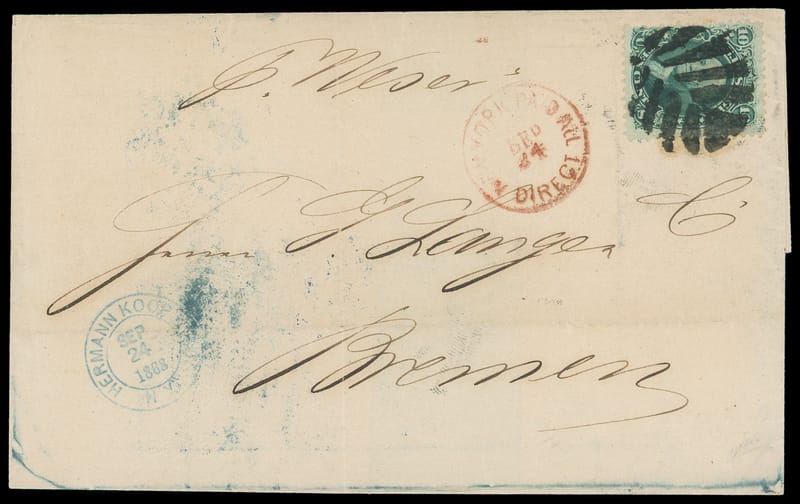 p. Weser
NEW YORK PAID ALL DIRECT
SEP
24
Herrn G Lange & C°
HERMANN KOOP
SEP
24
1868
N.Y.
Bremen
10